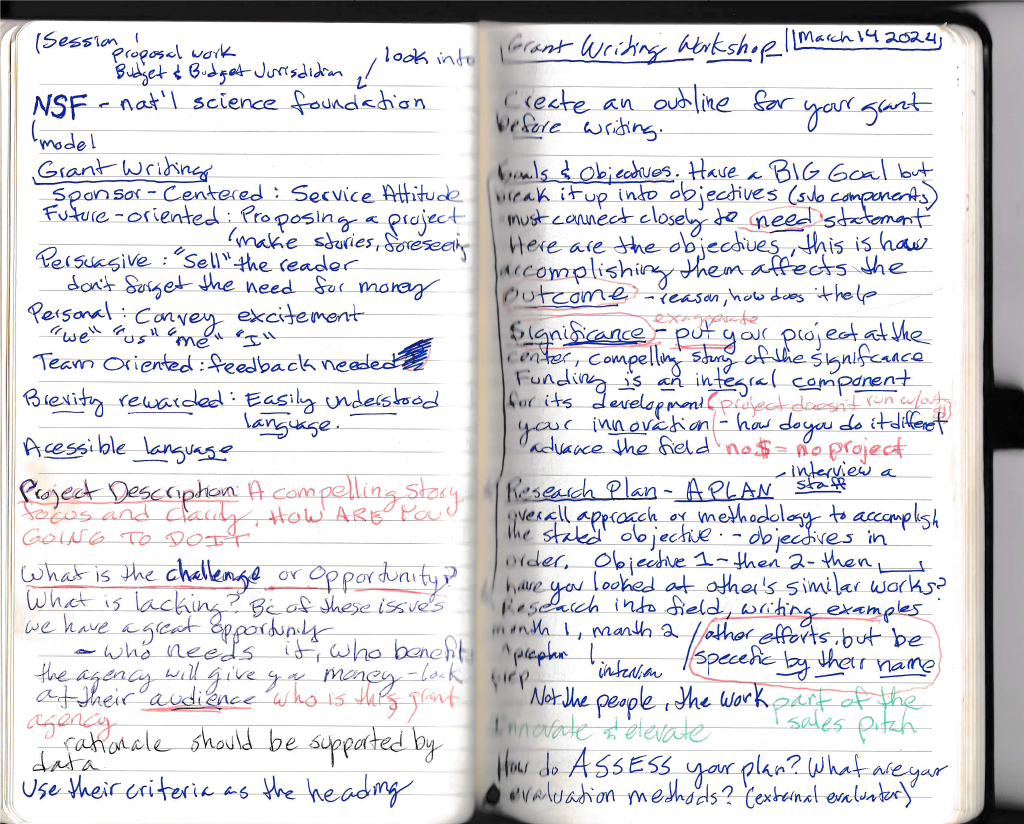 Session 1
Proposal work
Budget & Budget Jurisdidian
look into
NSF - nat'l science foundation
model
Grant Writing
Sponsor-Centered: Service Attitude
Future-oriented: Proposing a project
make stories, foreseeing
Persuasive: "Sell" the reader
don't forget the need for money
Personal: Convey excitement
"we" "us" "me" "I"
Team Oriented: feedback needed
Brevity rewarded: Easily understood
language.
Acessible language
Project Description: A compelling story
focus and clarity. HOW ARE YOU
GOING TO DO IT
What is the challenge or opportunity?
What is lacking? Bc of these issue's
we have a great opportunity
- who needs it, who benefits
the agency will give you money - look
at their audience who is this grant
agency
rationale should be supported by
data
Use their criteria as the heading
Grant Writing Workshop
March 14 2024
Create an outline for your grant
before writing.
Goals & Objectives. Have a BIG Goal but
break it up into objectives (sub components)
must connect closely to need statement
Here are the objectives, this is how
accomplishing them affects the
outcome - reason, how does it help
exaggerate
Significance - put your project at the
center, compelling story of the signifcance
Funding is an integral component
for its development (project doesn't run w/out $)
your innovation - how do you do it different
advance the field no $ = no project
interview a
staff
Research Plan - A PLAN
overall approach or methodology to accomplish
the stated objective. - objectives in
order, Objective 1 - then 2 - then
have you looked at other's similar works?
Research into field, writing examples
month 1, month 2
other efforts, but be
specefic by their name
preplan
prep
interview
Not the people, the work part of the
sales pitch
Innovate & elevate
How do ASSESS your plan? What are your
evaluation methods? (external evaluator)